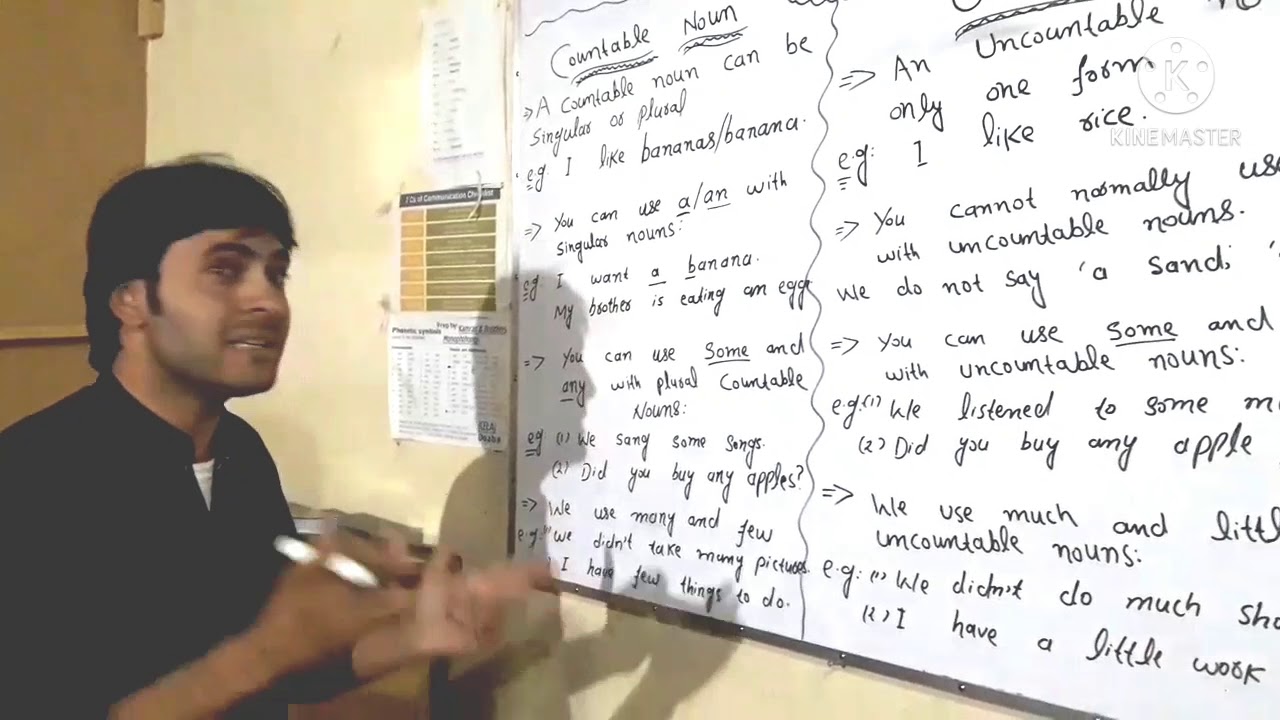 Countable Noun
=> A Countable noun can be
Singular or plural
e.g: I like bananas/banana.
=> You can use a/an with
Singular nouns:
eg: I want a banana.
My brother is eating an egg
=> You can use Some and
any with plural Countable
Nouns:
eg (1) We sang some songs.
(2) Did you buy any apples?
=> We use many and few
e.g:(1) we didn't take many pictures.
I have few things to do.
Uncountable
=> An
only one form
e.g: I like rice.
=> You cannot normally use
with uncountable nouns.
We do not say 'a Sand;
=> You can use Some and
with uncountable nouns:
e.g:(1) We listened to some
(2) Did you buy any apple
=> We use much and
uncountable nouns:
e.g:(1) We didn't do much
(2) I have a little work
K
KINEMASTER
7 Cs of Communication Checklist
Phonetic symbols